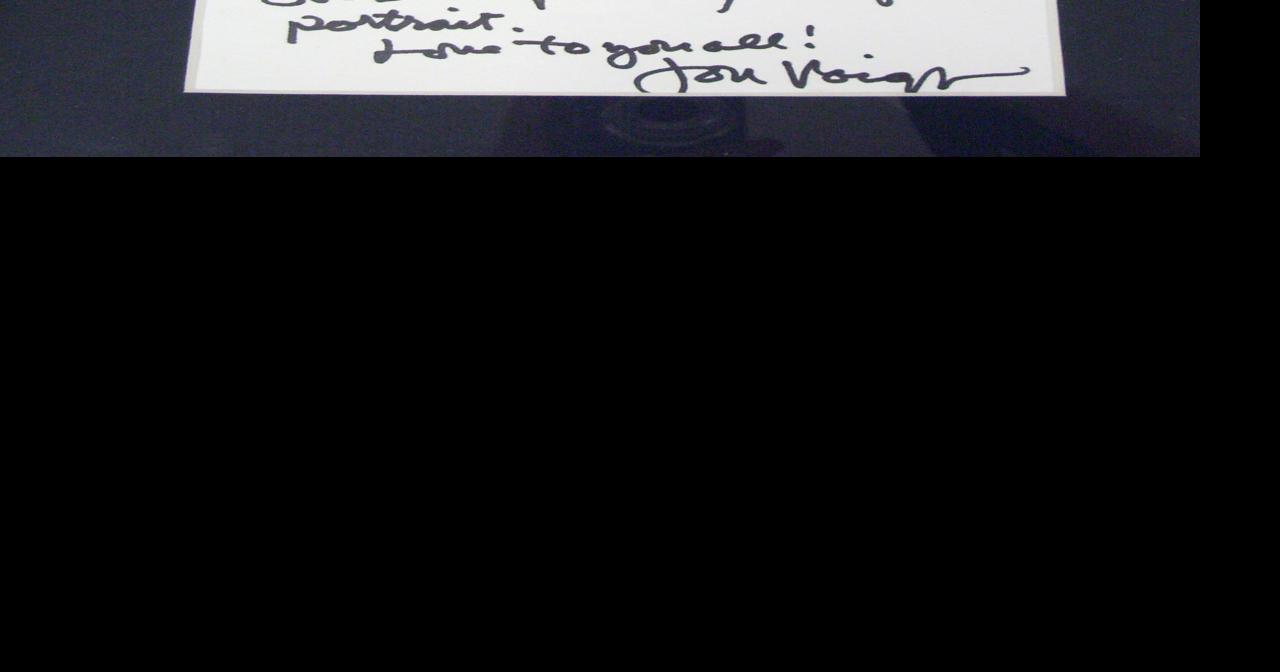 portrait.
Love to you all!
Jon Voight